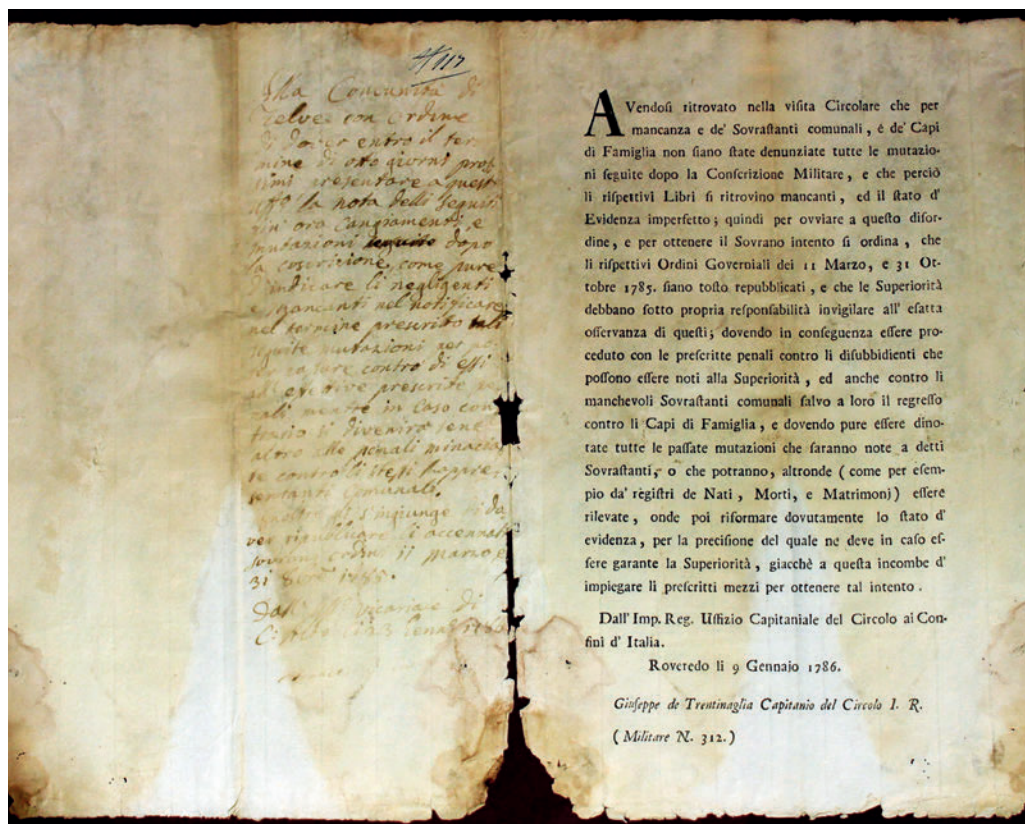 N 117
Alla Comunità di
Telve con Ordine
di dover entro il ter-
mine di otto giorni pros
simi presentare a quest
uffo la nota delli seguiti
fin ora cangiamenti, e
mutazioni seguite dopo
la coscrizione, come pure
d'indicare li negligenti
e mancanti nel notificare
nel termine prescritto tali
seguite mutazioni per po-
contro di essi
prescrite pe
nali mentre in caso con
trario si divenirà
altro alle penali minacia
te contro li stessi Rappre
sentanti Comunali.
Inoltre s'ingiunge di do
ver ripublicare li accennati
sovrani ordini 11 marzo e
31 1785.
Dall' Vicariale di
li 23
AVendoſi ritrovato nella viſita Circolare che per
mancanza e de' Sovraſtanti comunali, è de' Capi
di Famiglia non ſiano ſtate denunziate tutte le mutazio-
ni ſeguite dopo la Conſcrizione Militare, e che perciò
li riſpettivi Libri ſi ritrovino mancanti, ed il ſtato d'
Evidenza imperfetto; quindi per ovviare a queſto diſor-
dine, e per ottenere il Sovrano intento ſi ordina, che
li riſpettivi Ordini Governiali dei 11 Marzo, e 31 Ot-
tobre 1785. ſiano toſto repubblicati, e che le Superiorità
debbano ſotto propria reſponſabilità invigilare all' eſatta
oſſervanza di queſti; dovendo in conſeguenza eſſere pro-
ceduto con le preſcritte penali contro li diſubbidienti che
poſſono eſſere noti alla Superiorità, ed anche contro li
manchevoli Sovraſtanti comunali ſalvo a loro il regreſſo
contro li Capi di Famiglia, e dovendo pure eſſere dino-
tate tutte le paſſate mutazioni che ſaranno note a detti
Sovraſtanti, o che potranno, altronde (come per eſem-
pio da' règiſtri de Nati, Morti, e Matrimonj) eſſere
rilevate, onde poi riformare dovutamente lo ſtato d'
evidenza, per la preciſione del quale ne deve in caſo eſ-
ſere garante la Superiorità, giacchè a queſta incombe d'
impiegare li preſcritti mezzi per ottenere tal intento.
Dall' Imp. Reg. Uffizio Capitaniale del Circolo ai Con-
fini d' Italia.
Roveredo li 9 Gennajo 1786.
Giuſeppe de Trentinaglia Capitanio del Circolo I. R.
(Militare N. 312.)